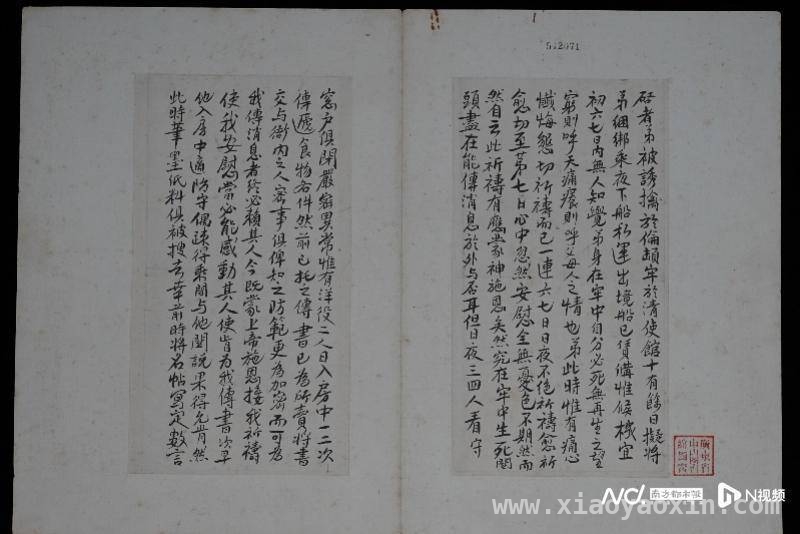 512071
启者弟被誘擒於倫頓牢於清使館十有餘日擬將
弟綑綁乘夜下船私運出境船已賃備惟候機宜
初六七日内無人知覺弟身在牢中自分必死無再生之望
窮則呼天痛癢則呼父母人之情也弟此時惟有痛心
懺悔懇切祈禱而已一連六七日日夜不绝祈禱愈祈
愈切至第七日心中忽然安慰全無憂色不期然而
然自云此祈禱有應蒙神施恩矣然究在牢中生死関
頭盡在能傳消息於外与否耳但日夜三四人看守
窓户俱閉嚴密異常惟有洋役二人日入房中一二次
傳遞食物各件然前已托之傳書已為所賣將書
交与衙内之人密事俱俾知之防範更為加密而可為
我傳消息者终必賴其人今既蒙上帝施恩接我祈禱
使我安慰當必能感動其人使肯为我傳書次早
他入房中適防守偶疎得乘間与他関説果得允肯然
此時筆墨纸料俱被搜去幸前時將名帖寫定数言
南方都市報
N视频
www.xiaoyaoxin.com